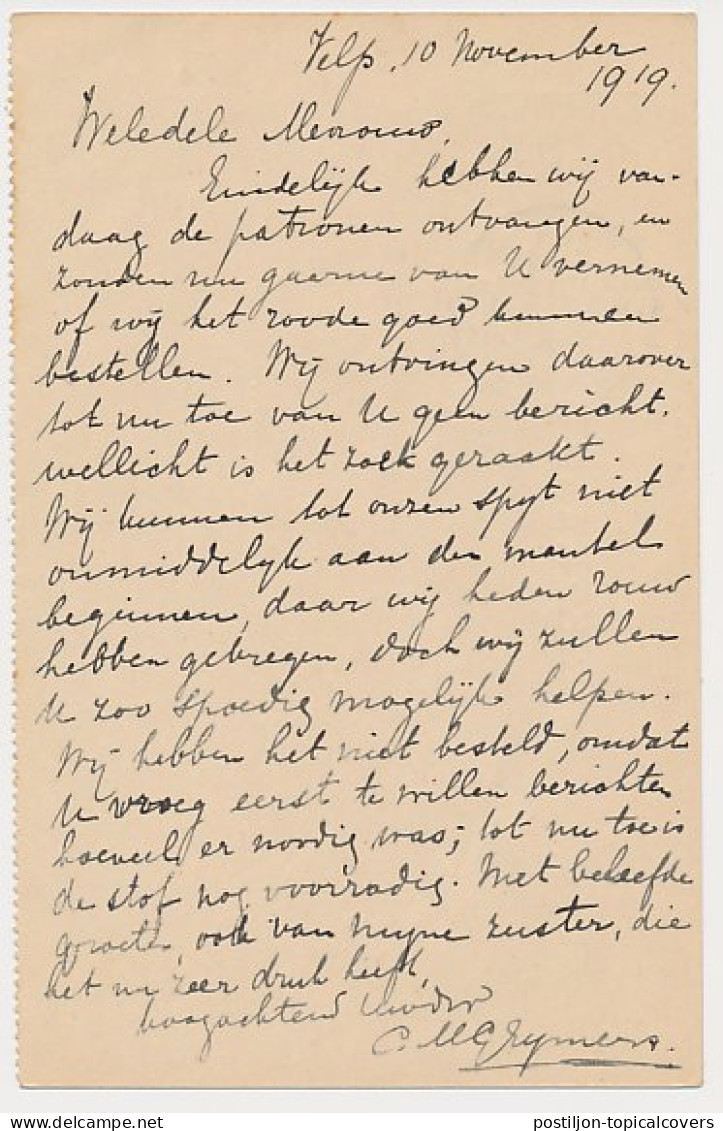 Velp, 10 November
1919.
Weledele Mevrouw,
Eindelijk hebben wij van-
daag de patronen ontvangen, en
zouden nu gaarne van U vernemen
of wij het roode goed kunnen
bestellen. Wij ontvingen daarover
tot nu toe van U geen bericht,
wellicht is het zoek geraakt.
Wij kunnen tot onzen spyt niet
onmiddelyk aan den mantel
beginnen, daar wij heden rouw
hebben gekregen, doch wij zullen
U zoo spoedig mogelijk helpen.
Wij hebben het niet besteld, omdat
U vroeg eerst te willen berichten
hoeveel er nodig was; tot nu toe is
de stof nog voorradig. Met beleefde
groeten, ook van mijne zuster, die
het nu zeer druk heeft,
hoogachtend Uwdw
C M G Rymers.
postiljon-topicalcovers